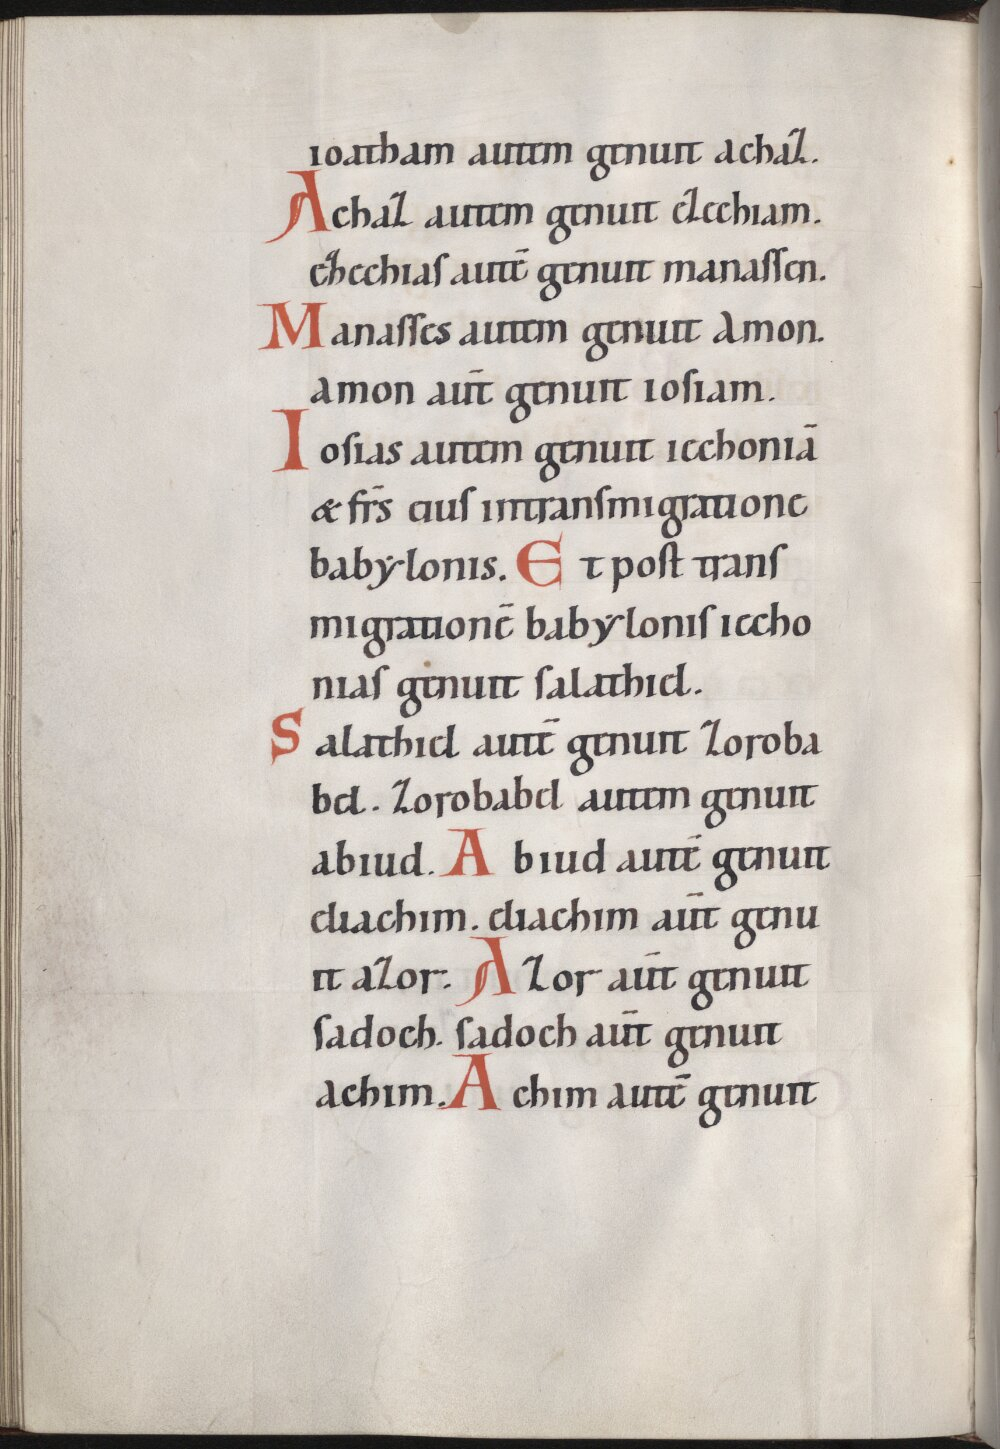 ioatham autem genuit achaz.
Achaz autem genuit ezechiam.
ezhechias autē genuit manassen.
Manasses autem genuit amon.
amon aūt genuit iosiam.
Iosias autem genuit iechoniā
& fr̄s eius intransmigratione
babylonis. Et post trans
migrationē babylonis iecho
nias genuit salathiel.
Salathiel autē genuit zoroba
bel. zorobabel autem genuit
abiud. Abiud autē genuit
eliachim. eliachim aūt genu
it azor. Azor aūt genuit
sadoch. sadoch aūt genuit
achim. Achim autē genuit